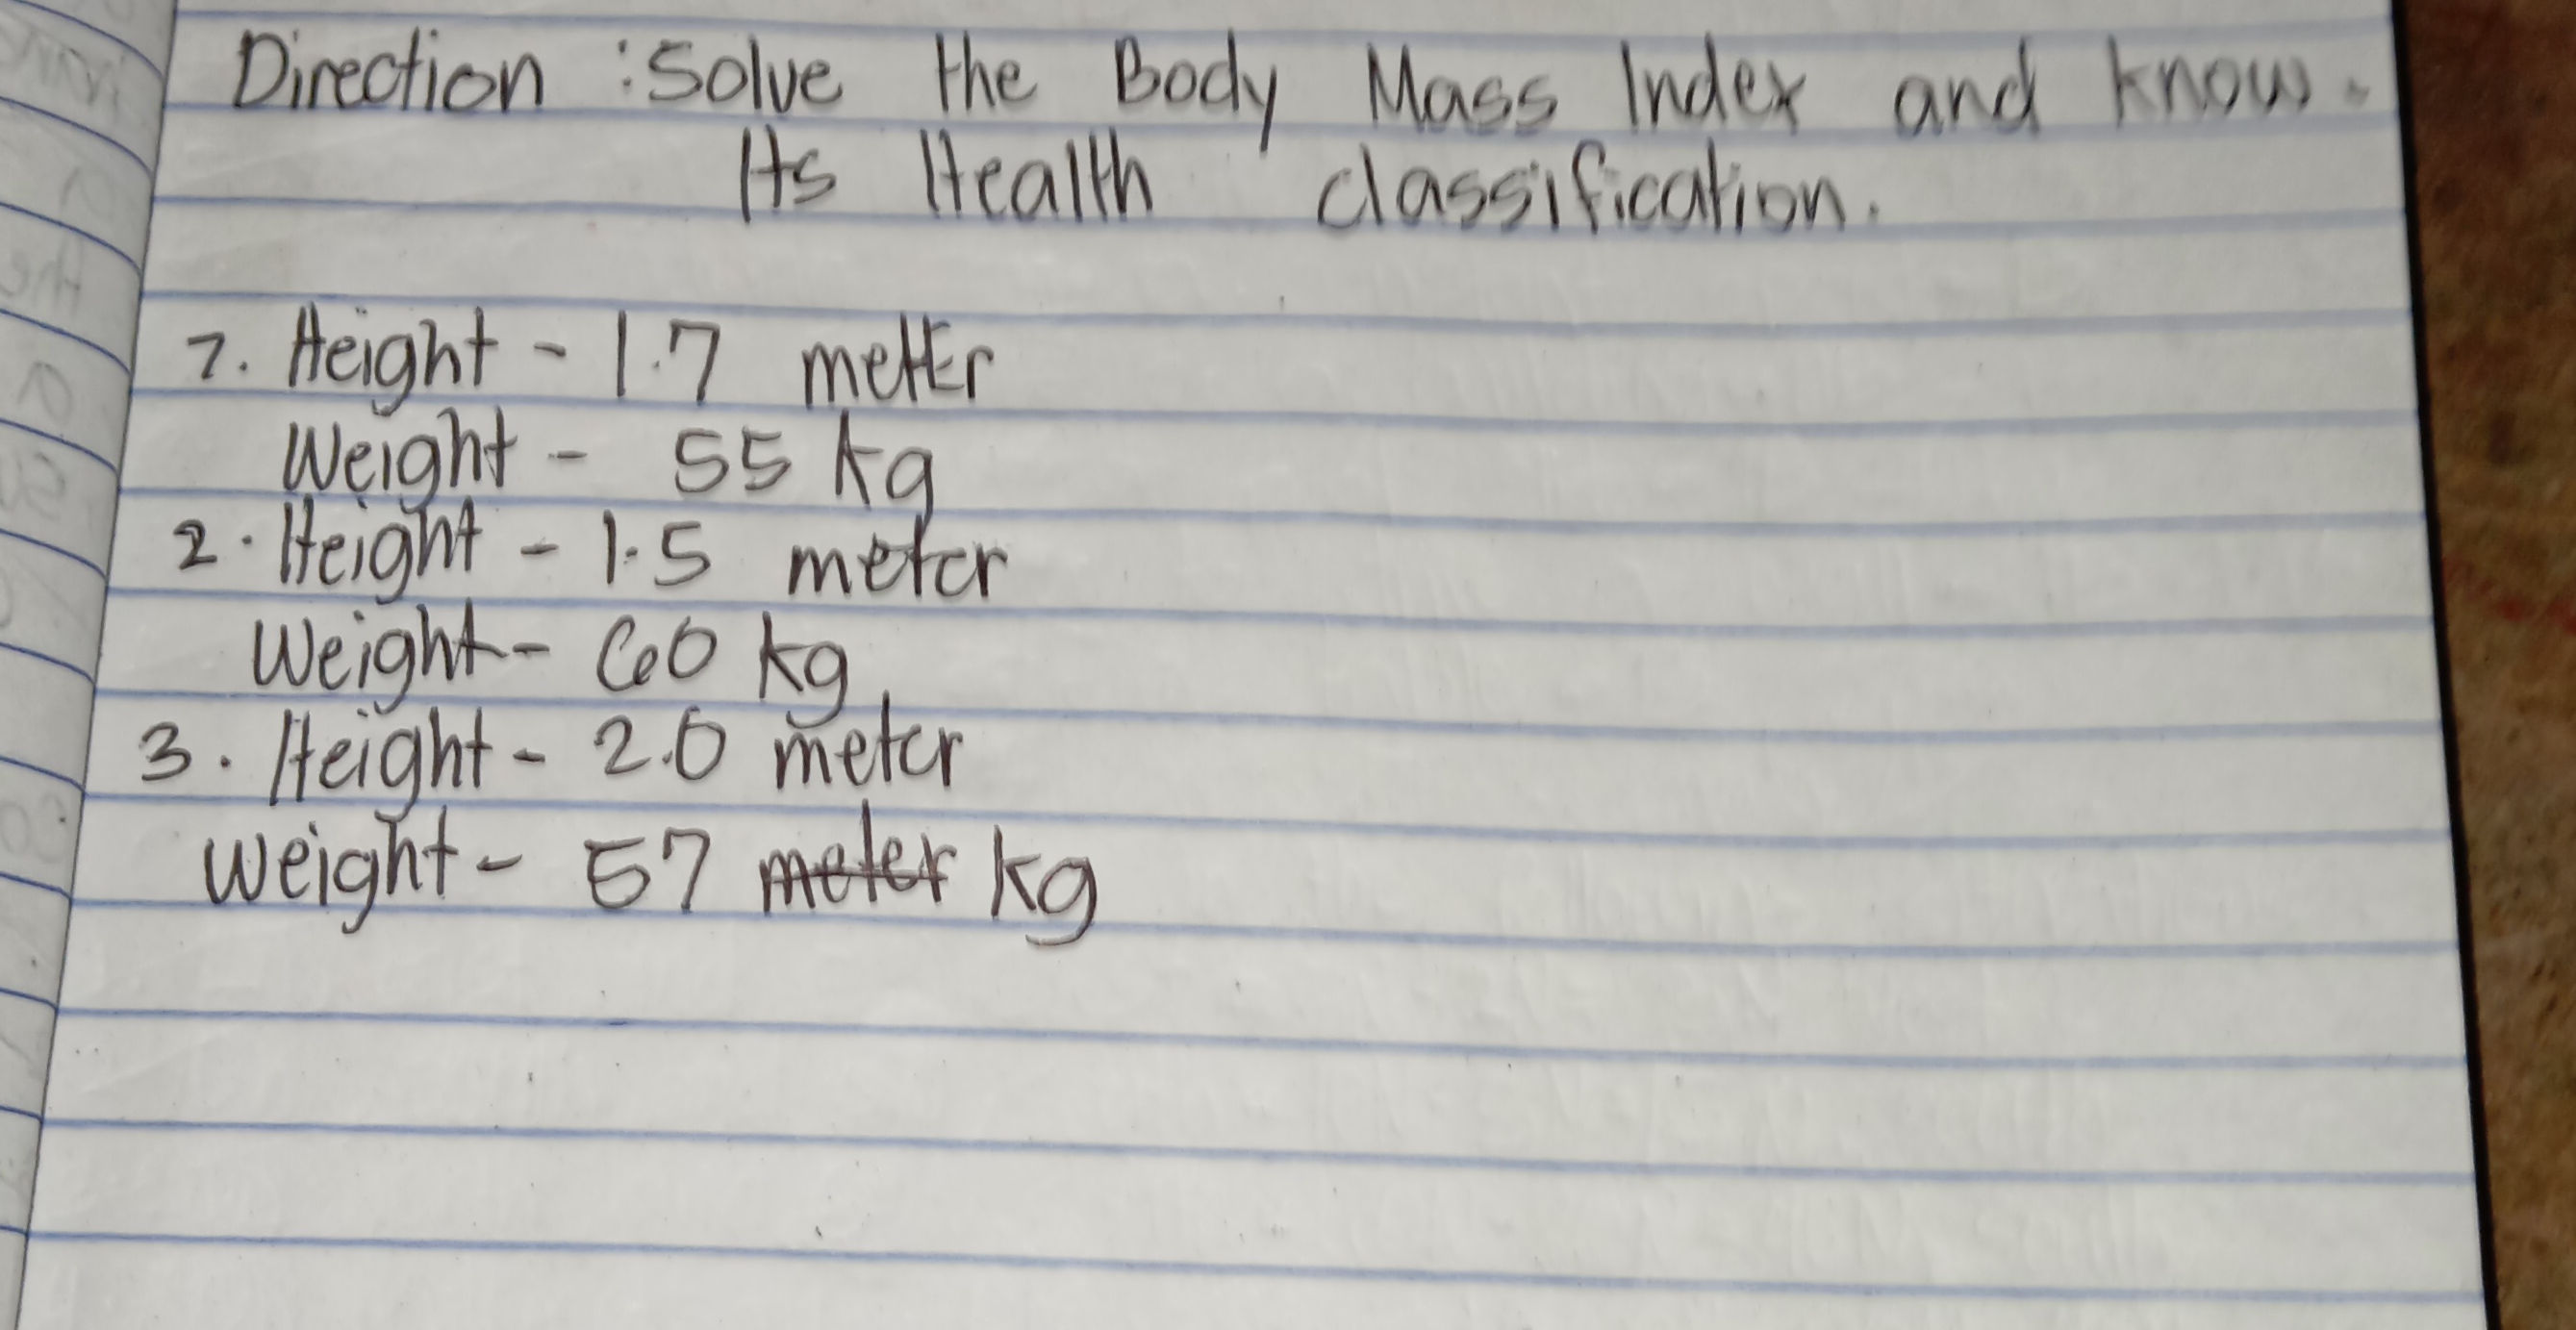 Direction : Solve the Body Mass Index and know.
Its Health classification.
1. Height - 1.7 metter
Weight - 55 kg
2. Height - 1.5 meter
Weight - 60 kg
3. Height - 2.0 meter
Weight - 57 meter kg